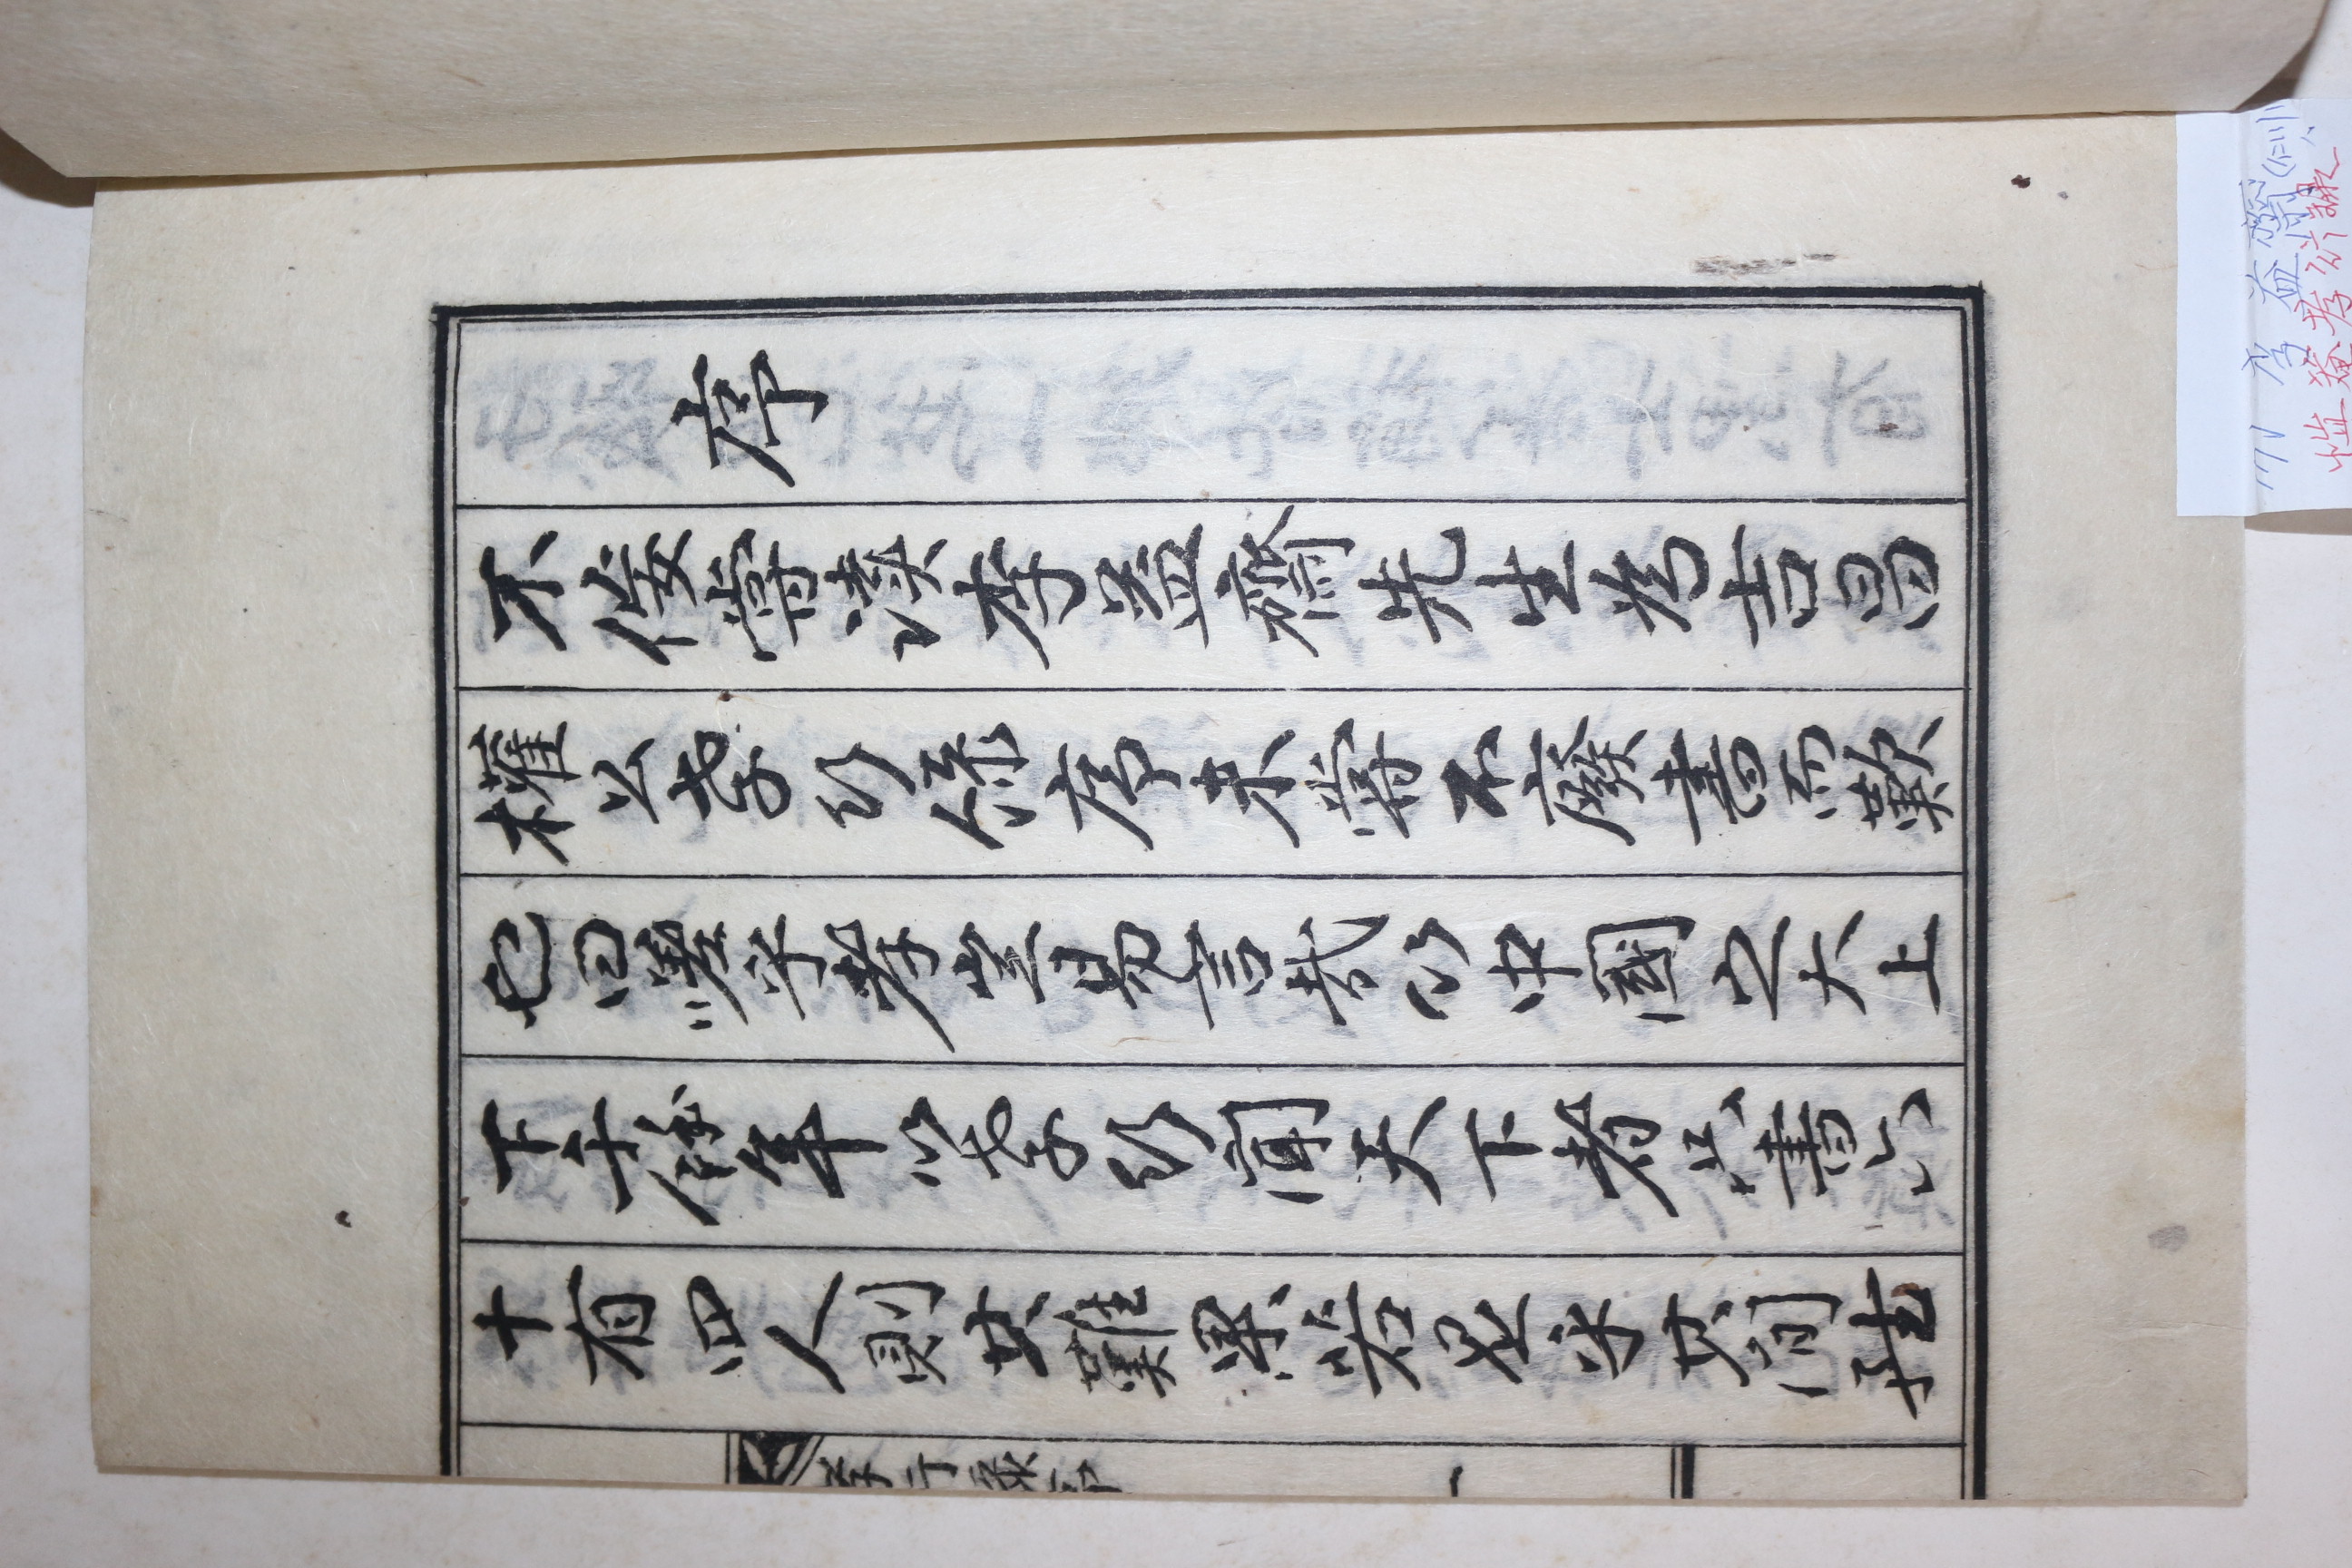 序
不佞嘗讀李益齋先生為吉昌
權公孝行錄序未嘗不廢書而歎
也曰嗟乎孝豈易言哉以中國之大上
下千餘年以孝行聞天下者只書六
十有四人則其難果若是乎其間雖
孝行錄序
一
171 李益齋(仁川)
愷菴孝行錄